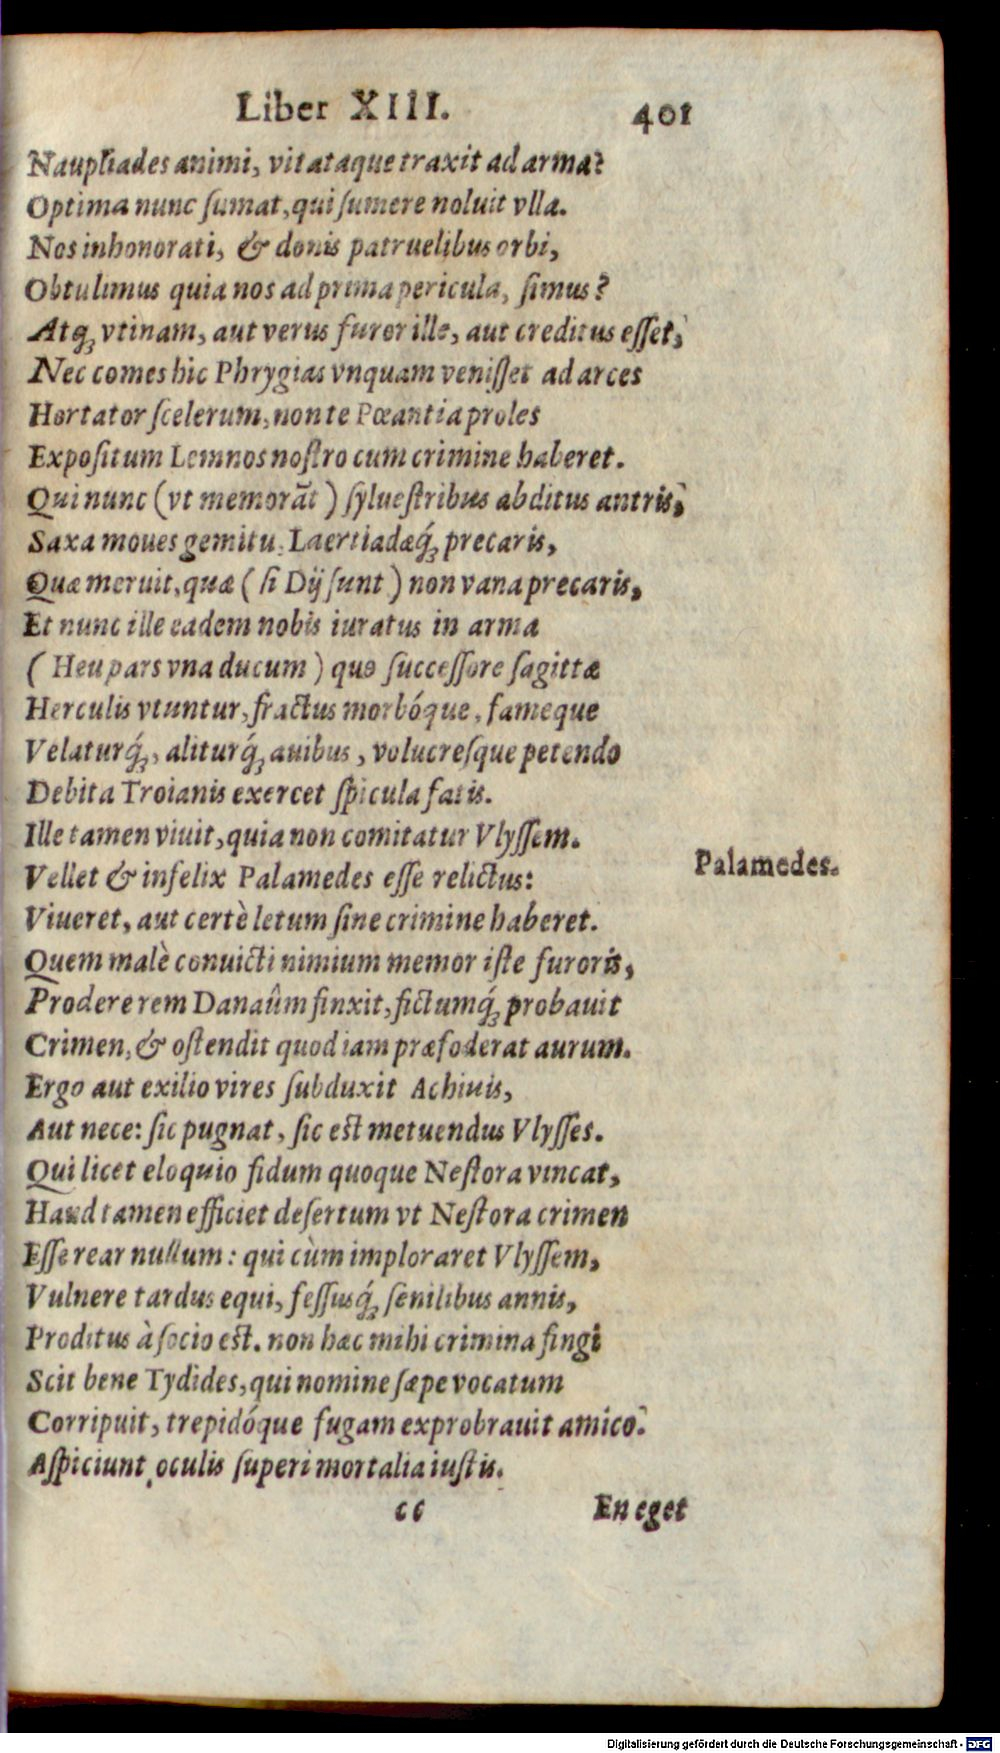 Liber XIII. 401
Naupliades animi, vitataque traxit ad arma?
Optima nunc ſumat, qui ſumere noluit vlla.
Nos inhonorati, & donis patruelibus orbi,
Obtulimus quia nos ad prima pericula, ſimus?
Atq́ꝫ vtinam, aut verus furor ille, aut creditus eſſet,
Nec comes hic Phrygias vnquam veniſſet ad arces
Hortator ſcelerum, non te Pœantia proles
Expoſitum Lemnos noſtro cum crimine haberet.
Qui nunc (vt memorāt) ſylueſtribus abditus antris,
Saxa moues gemitu, Laertiadæq́ꝫ precaris,
Quæ meruit, quæ (ſi Dij ſunt) non vana precaris,
Et nunc ille eadem nobis iuratus in arma
(Heu pars vna ducum) quo ſucceſſore ſagittæ
Herculis vtuntur, fractus morbóque, fameque
Velaturq́ꝫ, aliturq́ꝫ auibus, volucreſque petendo
Debita Troianis exercet ſpicula fatis.
Ille tamen viuit, quia non comitatur Vlyſſem.
Vellet & infelix Palamedes eſſe relictus:
Palamedes.
Viueret, aut certè letum ſine crimine haberet.
Quem malè conuicti nimium memor iſte furoris,
Prodere rem Danaûm finxit, fictumq́ꝫ probauit
Crimen, & oſtendit quod iam præfoderat aurum.
Ergo aut exilio vires ſubduxit Achiuis,
Aut nece: ſic pugnat, ſic eſt metuendus Vlyſſes.
Qui licet eloquio fidum quoque Neſtora vincat,
Haud tamen efficiet deſertum vt Neſtora crimen
Eſſe rear nullum: qui cùm imploraret Vlyſſem,
Vulnere tardus equi, feſſusq́ꝫ ſenilibus annis,
Proditus à ſocio eſt. non hæc mihi crimina fingi
Scit bene Tydides, qui nomine ſæpe vocatum
Corripuit, trepidóque fugam exprobrauit amico.
Aſpiciunt oculis ſuperi mortalia iuſtis.
cc En eget
Digitalisierung gefördert durch die Deutsche Forschungsgemeinschaft - DFG